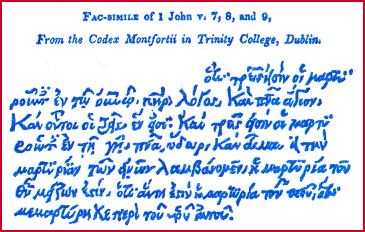 FAC-SIMILE of 1 JOHN v. 7, 8, and 9,
From the Codex Montfortii in Trinity College, Dublin.
ὅτι τρεῖς εἰσιν οἱ μαρτυ
ροῦντ ἐν τῷ οὐνῷ, πηρ, λόγος, καὶ πνα ἅγιον,
καὶ οὗτοι οἱ τρεῖς ἕν εἰσι. καὶ τρεῖς εἰσιν οἱ μαρτυ
ροῦντ ἐν τῇ γῇ, πνα, ὕδωρ, καὶ αἷμα, εἰ τὴν
μαρτυρίαν τῶν ἀνων λαμβάνομεν, ἡ μαρτυρία τοῦ
θυ μείζων ἐστίν, ὅτι αὕτη ἐστὶν ἡ μαρτυρία τοῦ θεοῦ, ὅτι
μεμαρτύρηκε περὶ τοῦ υἱοῦ αὐτοῦ.